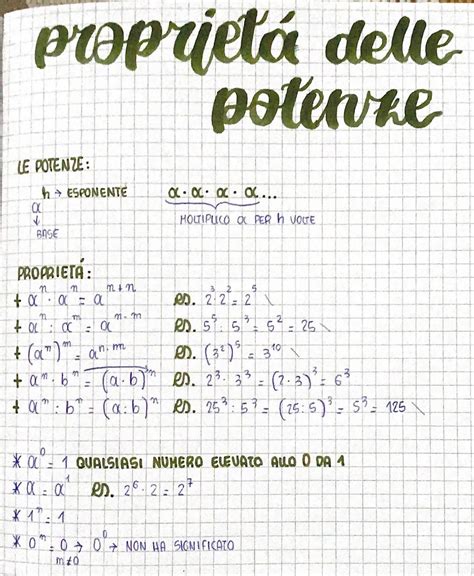 proprietá delle
potenze
LE POTENZE:
n → ESPONENTE a · a · a · a ...
a
↓ MOLTIPLICO a PER n VOLTE
BASE
PROPRIETÁ:
+ aⁿ · aⁿ = aⁿ⁺ⁿ es. 2³·2² = 2⁵
+ aⁿ : aᵐ = aⁿ·ᵐ es. 5⁵ : 5³ = 5² = 25
+ (aⁿ)ᵐ = aⁿ·ᵐ es. (3²)⁵ = 3¹⁰
+ aⁿ · bⁿ = (a·b)ⁿ es. 2³ · 3³ = (2·3)³ = 6³
+ aⁿ : bⁿ = (a:b)ⁿ es. 25³ : 5³ = (25:5)³ = 5³ = 125
* a⁰ = 1 QUALSIASI NUMERO ELEVATO ALLO 0 DA 1
* a = a¹ es. 2⁶ · 2 = 2⁷
* 1ⁿ = 1
* 0ⁿ = 0 → 0⁰ → NON HA SIGNIFICATO
m≠0